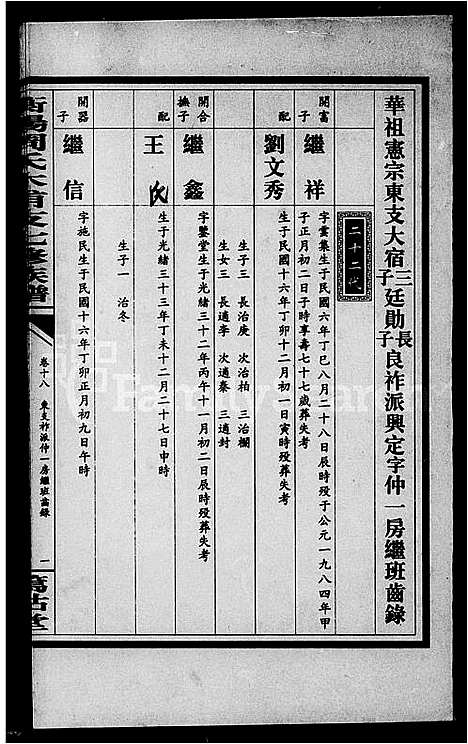 華祖憲宗東支大宿三子廷勛長子良祚派興定字仲一房繼班齒錄
二十二代
開富子 繼祥 字雲集生于民國六年丁巳八月二十八日辰時殁于公元一九八四年甲
子正月初二日子時享壽七十七歲葬失考
配 劉文秀 生于民國十六年丁卯十二月初一日寅時殁葬失考
生子三 長治庚 次治柏 三治欄
生女三 長適李 次適秦 三適封
開合撫子 繼鑫 字鑒堂生于光緒三十二年丙午十一月初二日辰時殁葬失考
配 王氏 生于光緒三十三年丁未十二月二十七日申時
生子一 治冬
開器子 繼信 字施民生于民國十六年丁卯正月初九日午時
衡陽周氏大宿支七修族譜
卷十八 東支祚派仲一房繼班齒錄 一